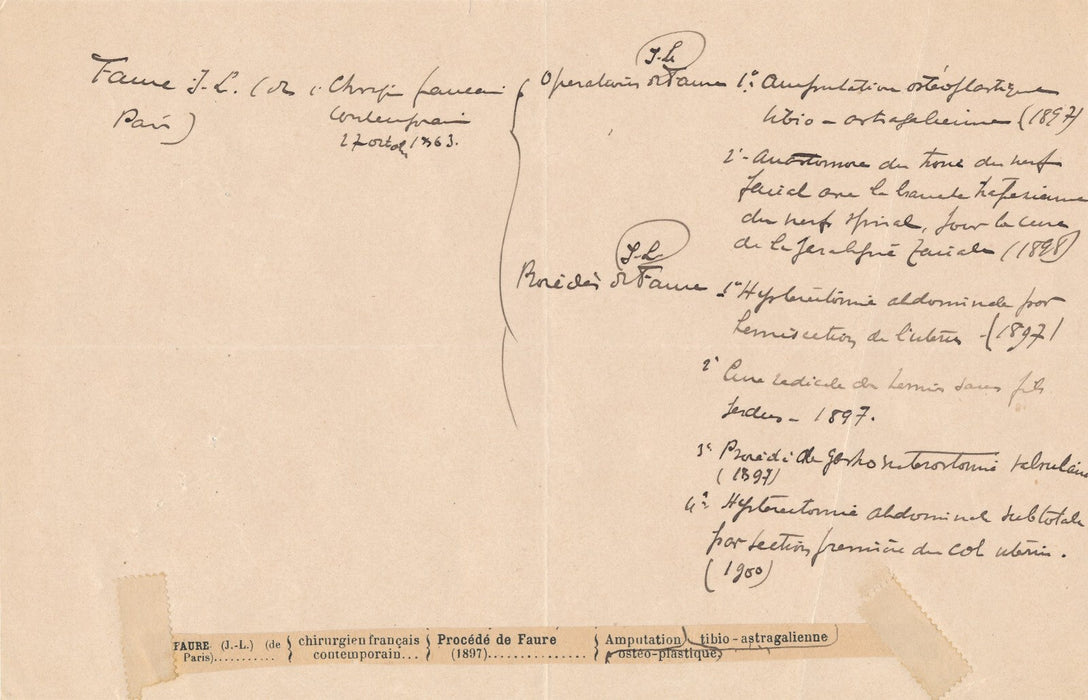 Faure J.-L. (de
Paris)
Chirurgien français
contemporain
27 octob. 1863.
J-L
Opérations de Faure 1° Amputation ostéoplastique
tibio-astragalienne (1897)
2° - Anastomose du tronc du nerf
facial avec la branche trapézienne
du nerf spinal, pour la cure
de la paralysie faciale (1898)
J-L
Procédés de Faure 1° Hystérectomie abdominale par
hémisection de l'utérus - (1897)
2° Cure radicale des hernies sans fils
perdus - 1897.
3° Procédé de gastro entérostomie valvulaire
(1897)
4° Hystérectomie abdominale subtotale
par section première du col utérin.
(1900)
FAURE (J.-L.) (de
Paris)...........
chirurgien français
contemporain...
Procédé de Faure
(1897)................
Amputation tibio-astragalienne
ostéo-plastique.